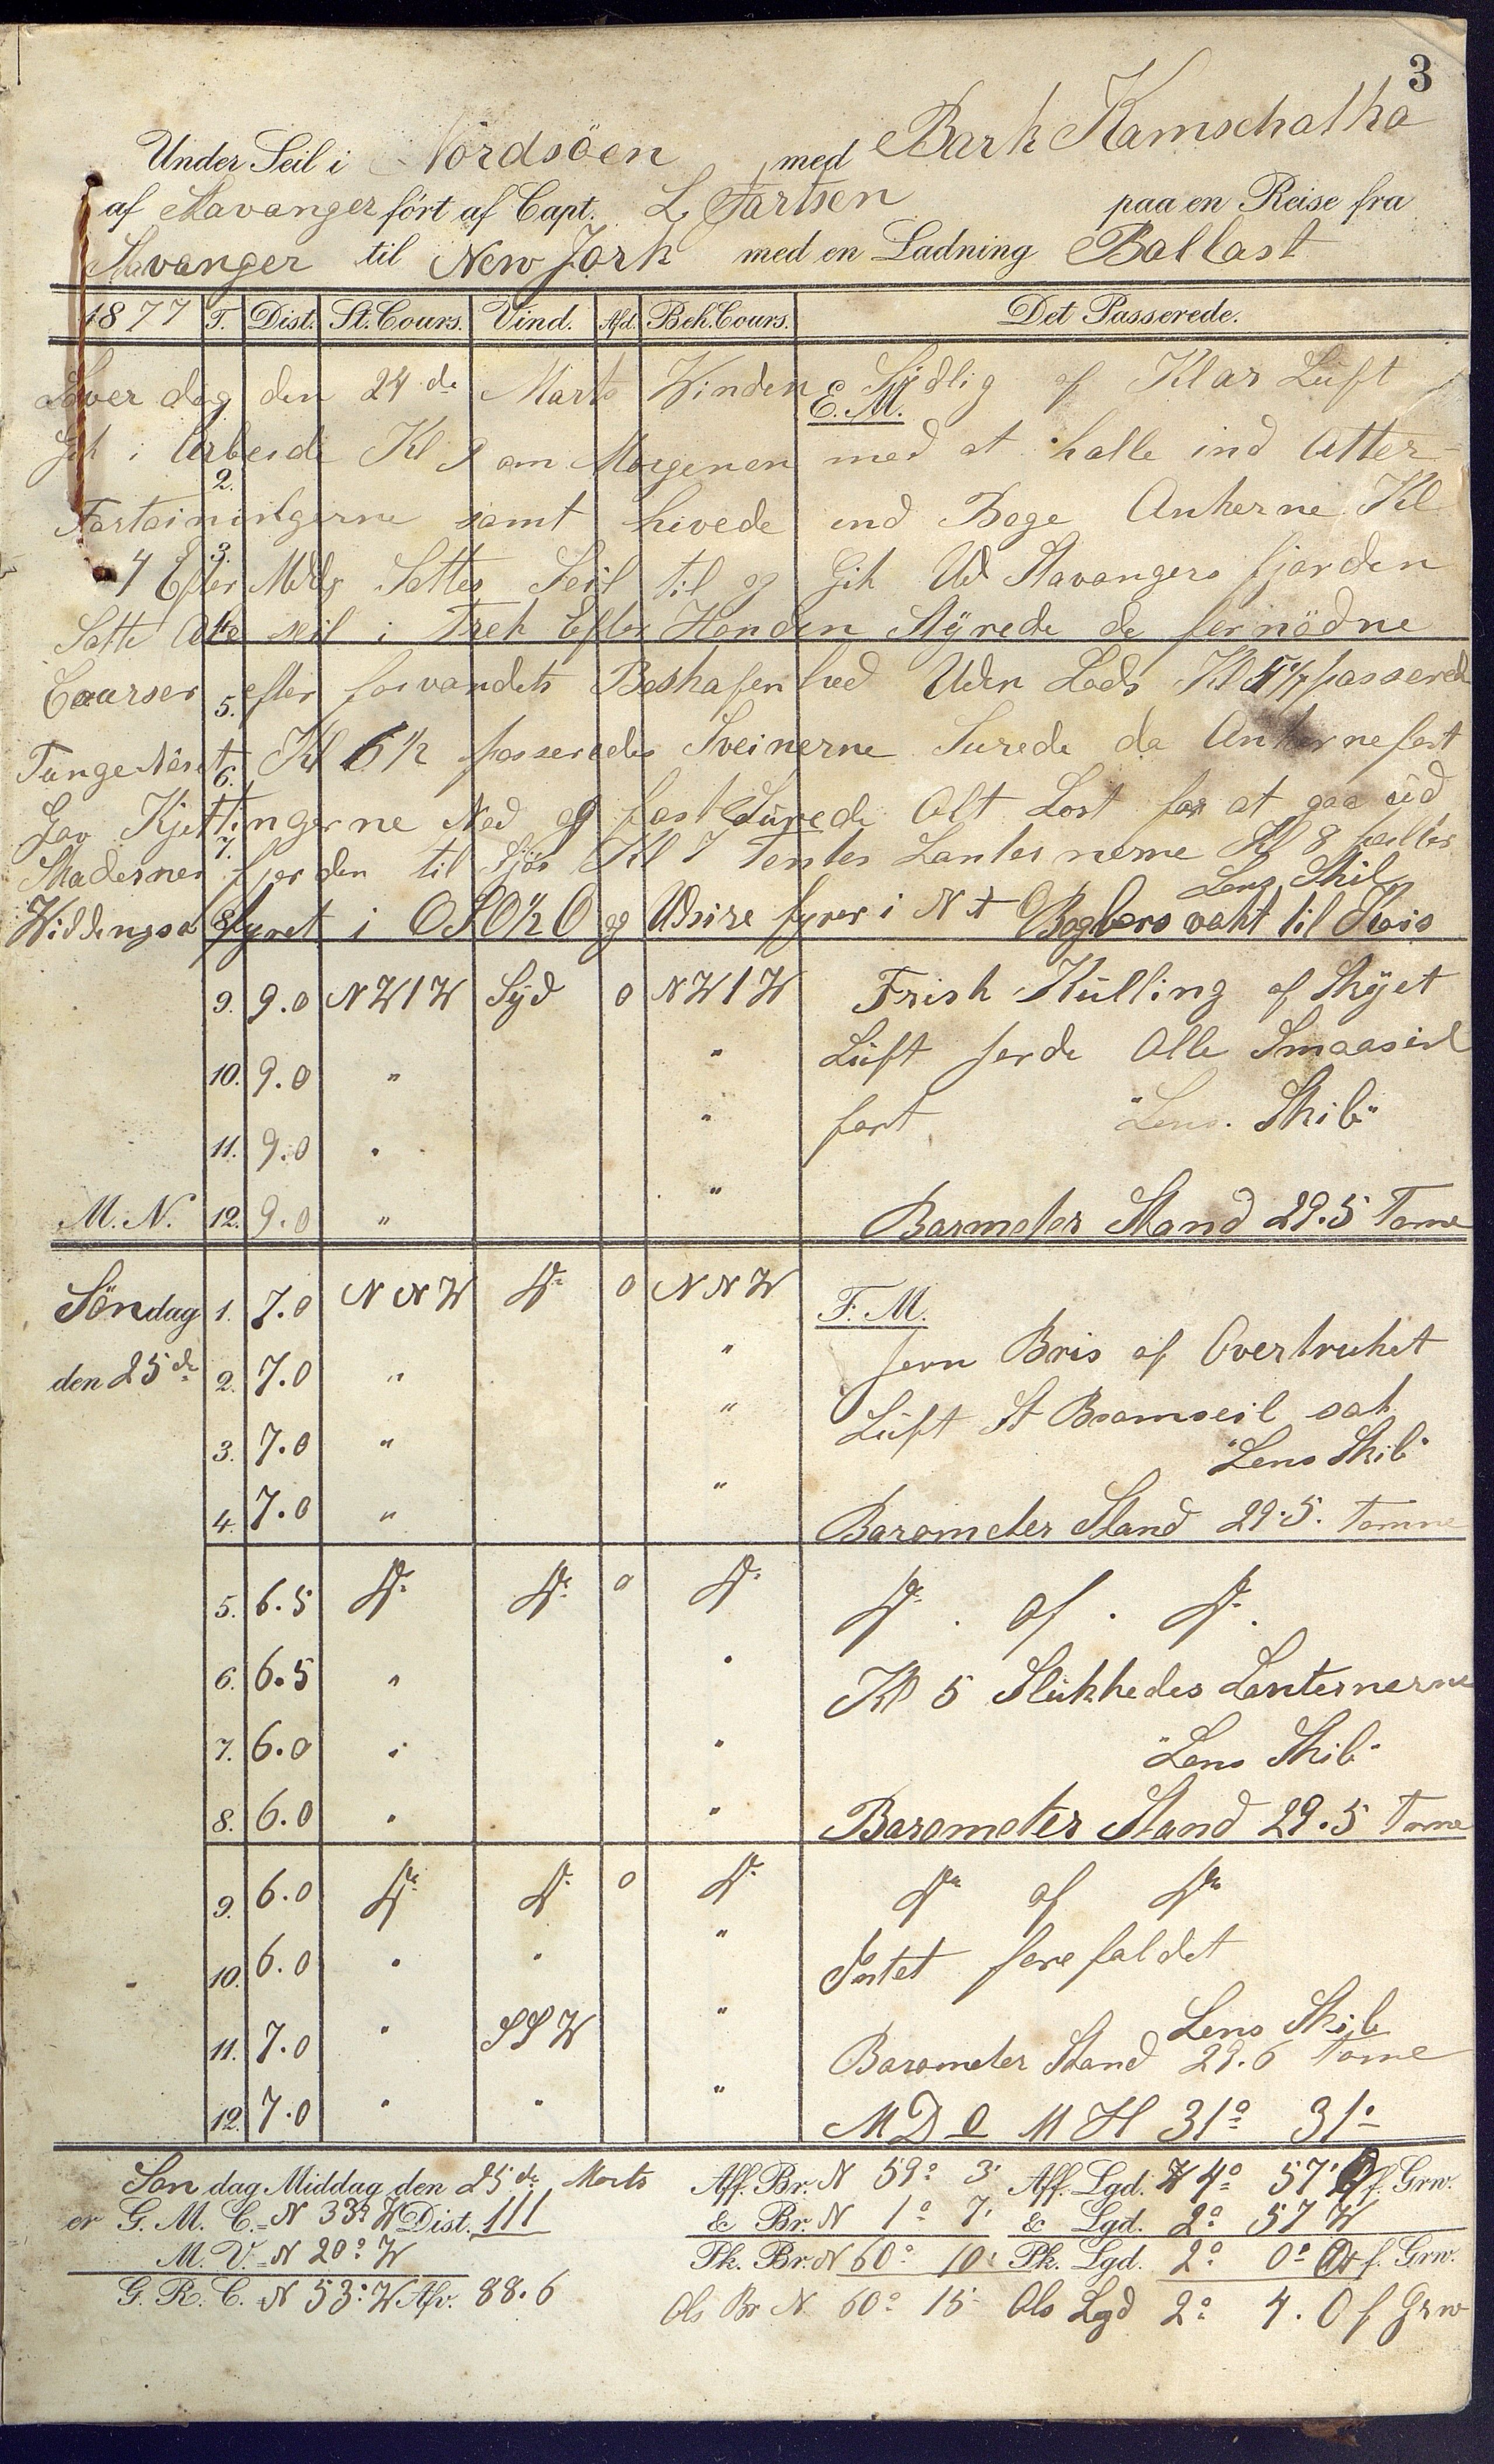 3
Under Seil i Nordsöen med Bark Kamschatka
af Stavanger fört af Capt. L. Fartsen paa en Reise fra
Stavanger til New York med en Ladning Ballast
1877 T. Dist. St. Cours. Vind. Afd. Beh. Cours. Det Passerede.
Löver dag den 24 de Marts Winden Sÿdlig af Klar Luft
E. M.
Gik i Arbeide Kl 9 om Morgenen med at halle ind Atter-
2.
Fortöiningerne samt hivede ind Boge Ankerne Kl
3.
4 Efter Mdg Settes Seil til og Gik Ud Stavangers fjorden
Sette Alle seil i Trek Efter Honden Stÿrede de fornödne
Caarser 5. efter farvandets Beskafenhed Uden Lods Kl 5 1/2 passerede
TungeNäset 6. Kl 6 1/2 passeredes Sveinerne Surede da Ankerne fast
Gav Kjettingerne Ned og fast Surede Alt Lost for at gaa ud
7.
Skadesnes fjorden til Sjös Kl 7 Tentes Lanternerne Kl 8 peiltes
Lens Skib
Widdingsö 8. fyret i OSO 1/2 O og Udsire fyrer i N t O Bagbors vakt til Kois
9. 9.0 NW 1 W Sÿd 0 NW 1 W Frisk Kulling af Skÿet
10. 9.0 " " Luft Jorde Alle Smaaseil
11. 9.0 " " fast "Lens. Skib"
M. N. 12. 9.0 " " Barmeter Stand 29.5 Tome
Söndag 1. 7.0 N N W Do 0 N N W F. M.
den 25 de 2. 7.0 " " Jevn Bris af Overtruket
3. 7.0 " " Luft St Bramseil sat
"Lens Skib"
4. 7.0 " " Barometer Stand 29.5. Tomme
5. 6.5 Do Do 0 Do Do . af . Do .
6. 6.5 " " Kl 5 Slukkedes Lanternerne
7. 6.0 " " "Lens Skib"
8. 6.0 " " Barometer Stand 29.5 Tome
9. 6.0 Do Do 0 Do Do af Do
10. 6.0 " " " Intet forefaldet
11. 7.0 " SSW " Lens Skib
Barometer Stand 29.6 Tome
12. 7.0 " " " M D 0 M H 31° 31'
Sön dag Middag den 25 de Marts Aff. Br. N 59° 3' Aff. Lgd. 4° 57' O f. Grw.
er G. M. C. = N 33° W Dist. 111 & Br. N 1° 7' & Lgd. 2° 57 W
M. V. = N 20° W Pk. Br. N 60° 10' Pk. Lgd. 2° 0° Ost f. Grw.
G. R. C. = N 53° W Afv. 88.6 Obs Br N 60° 15' Obs Lgd 2° 4. O f Grw